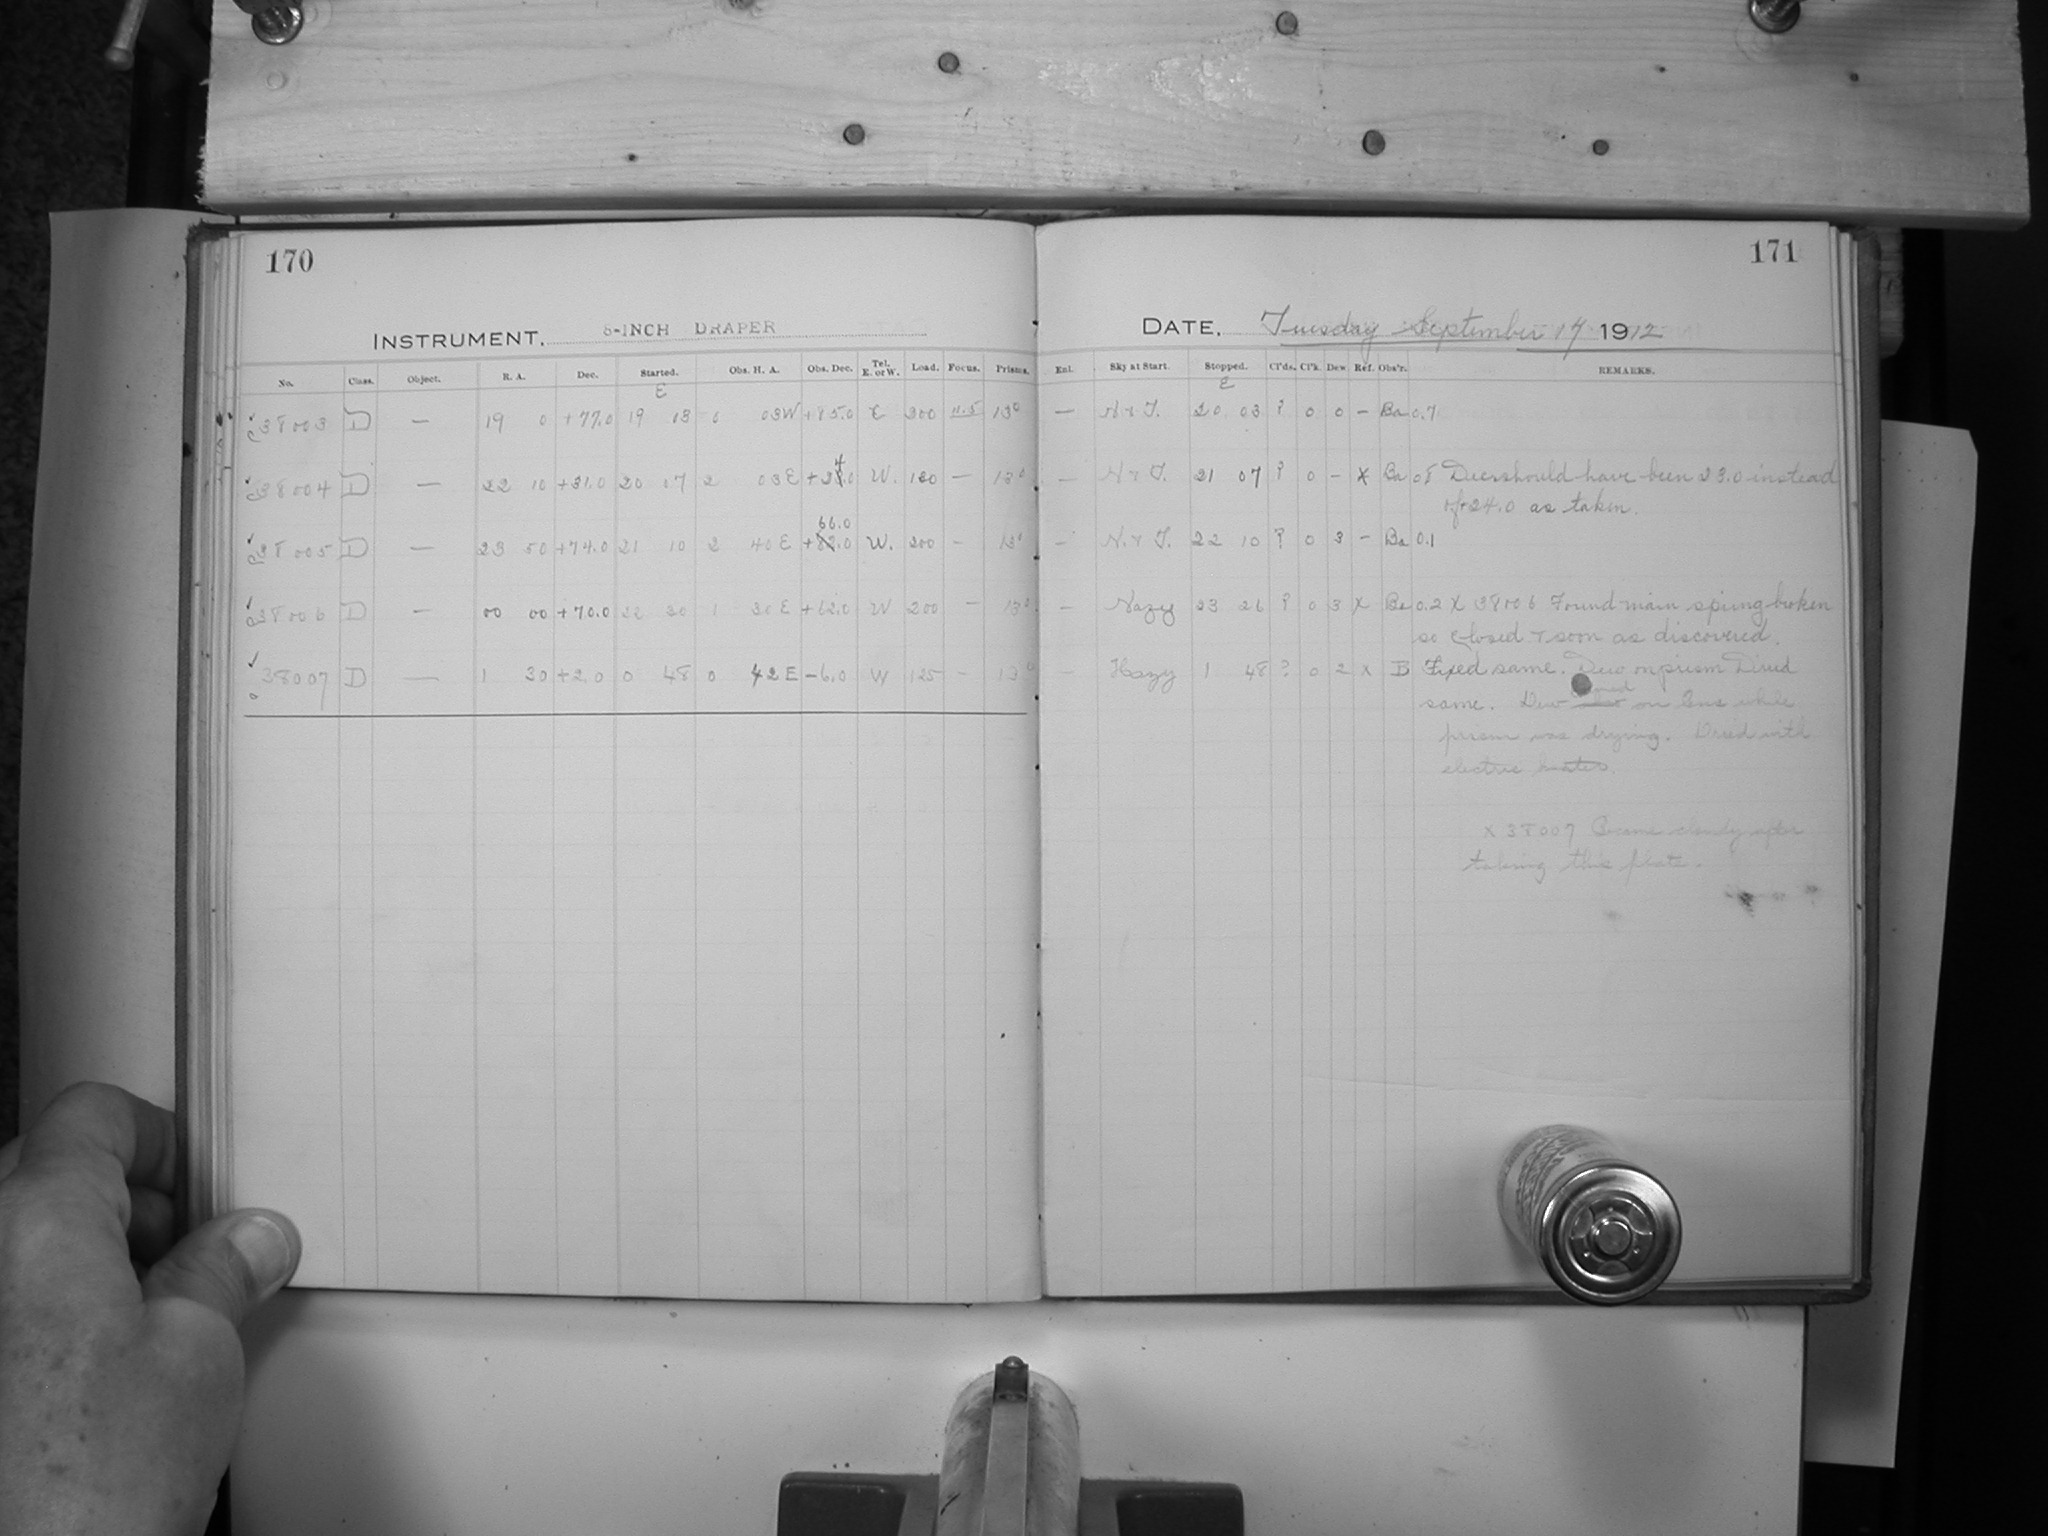 170
171
INSTRUMENT. 8-INCH DRAPER
DATE. Tuesday September 17 1912
No. Class. Object. R. A. Dec. Started. Obs. H. A. Obs. Dec. Tel. E. or W. Load. Focus. Prisms. Enl. Sky at Start. Stopped. Cl'ds. Cl'k. Dew Ref. Obs'r. REMARKS.
E E
38003 D — 19 0 +77.0 19 03 0 03W +85.0 E 200 11.5 13° — 20 03 ? 0 0 – Ba 0.7
38004 D — 22 10 +31.0 20 07 2 03E W. 120 — 13° — 21 07 ? 0 – X Ba 0.8 Dec should have been 23.0 instead
of 24.0 as taken.
66.0
38005 D — 23 50 +74.0 21 10 2 40E +82.0 W. 200 – 13° — 22 10 ? 0 3 – Ba 0.1
38006 D — 00 00 +70.0 22 30 1 30E +62.0 W 200 — 13° — Hazy 23 26 ? 0 3 X Ba 0.2 X 38006 Found main spring broken
so closed + soon as discovered.
38007 D — 1 30 +2.0 0 48 0 42E –6.0 W 125 – 13° — Hazy 1 48 ? 0 2 X B Fixed same. Dew on prism Dried
same. Dew on lens while
prism was drying. Dried with
electric heater.
X 38007 Became cloudy after
taking this plate.